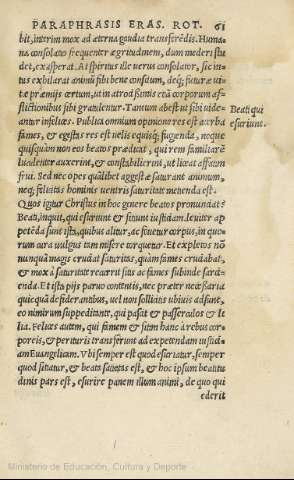 PARAPHRASIS ERAS. ROT. 61
bit, interim mox ad æterna gaudia transferēdis. Huma-
na consolatio frequenter ægritudinem, dum mederi stu
det, exasperat. At spiritus ille verus consolator, sic in-
tus exhilarat animū sibi bene consciū, deq; futuræ ui-
tæ præmijs certum, ut in atrocissimis etiā corporum af-
flictionibus sibi gratulentur. Tantum abest ut sibi uide-
antur infelices. Publica omnium opinione res est acerba
fames, & egestas res est uelis equisq; fugienda, neque
quisquam non eos beatos prædicat, qui rem familiarē
luculenter auxerint, & constabilierint, ut liceat affatim
frui. Sed nec opes qualibet aggestæ saturant animum,
neq; felicitas hominis uentris saturitate metienda est.
Beati qui
esuriunt.
Quos igitur Christus in hoc genere beatos pronunciat?
Beati, inquit, qui esuriunt & sitiunt iustitiam. Leuiter ap
petēda sunt ista, quibus alitur, ac fouetur corpus, in quo-
rum cura uulgus tam misere torquetur. Et expletos nō
nunquā magis cruciat saturitas, quàm fames cruciabat,
& mox à saturitate recurrit sitis ac fames subinde sarci-
enda. Et ista pijs paruo contentis, nec præter necessaria
quicquā desiderantibus, uel non sollicitis ubiuis adsunt,
eo nimirum suppeditante, qui pascit & passerculos & li
lia. Felices autem, qui famem & sitim hanc à rebus cor-
poreis, & perituris transferunt ad expetendam iustiti-
am Euangelicam. Vbi semper est quod esuriatur, semper
quod sitiatur, & beata saturitas est, & hoc ipsum beatitu
dinis pars est, esurire panem illum animi, de quo qui
ederit
Ministerio de Educación, Cultura y Deporte